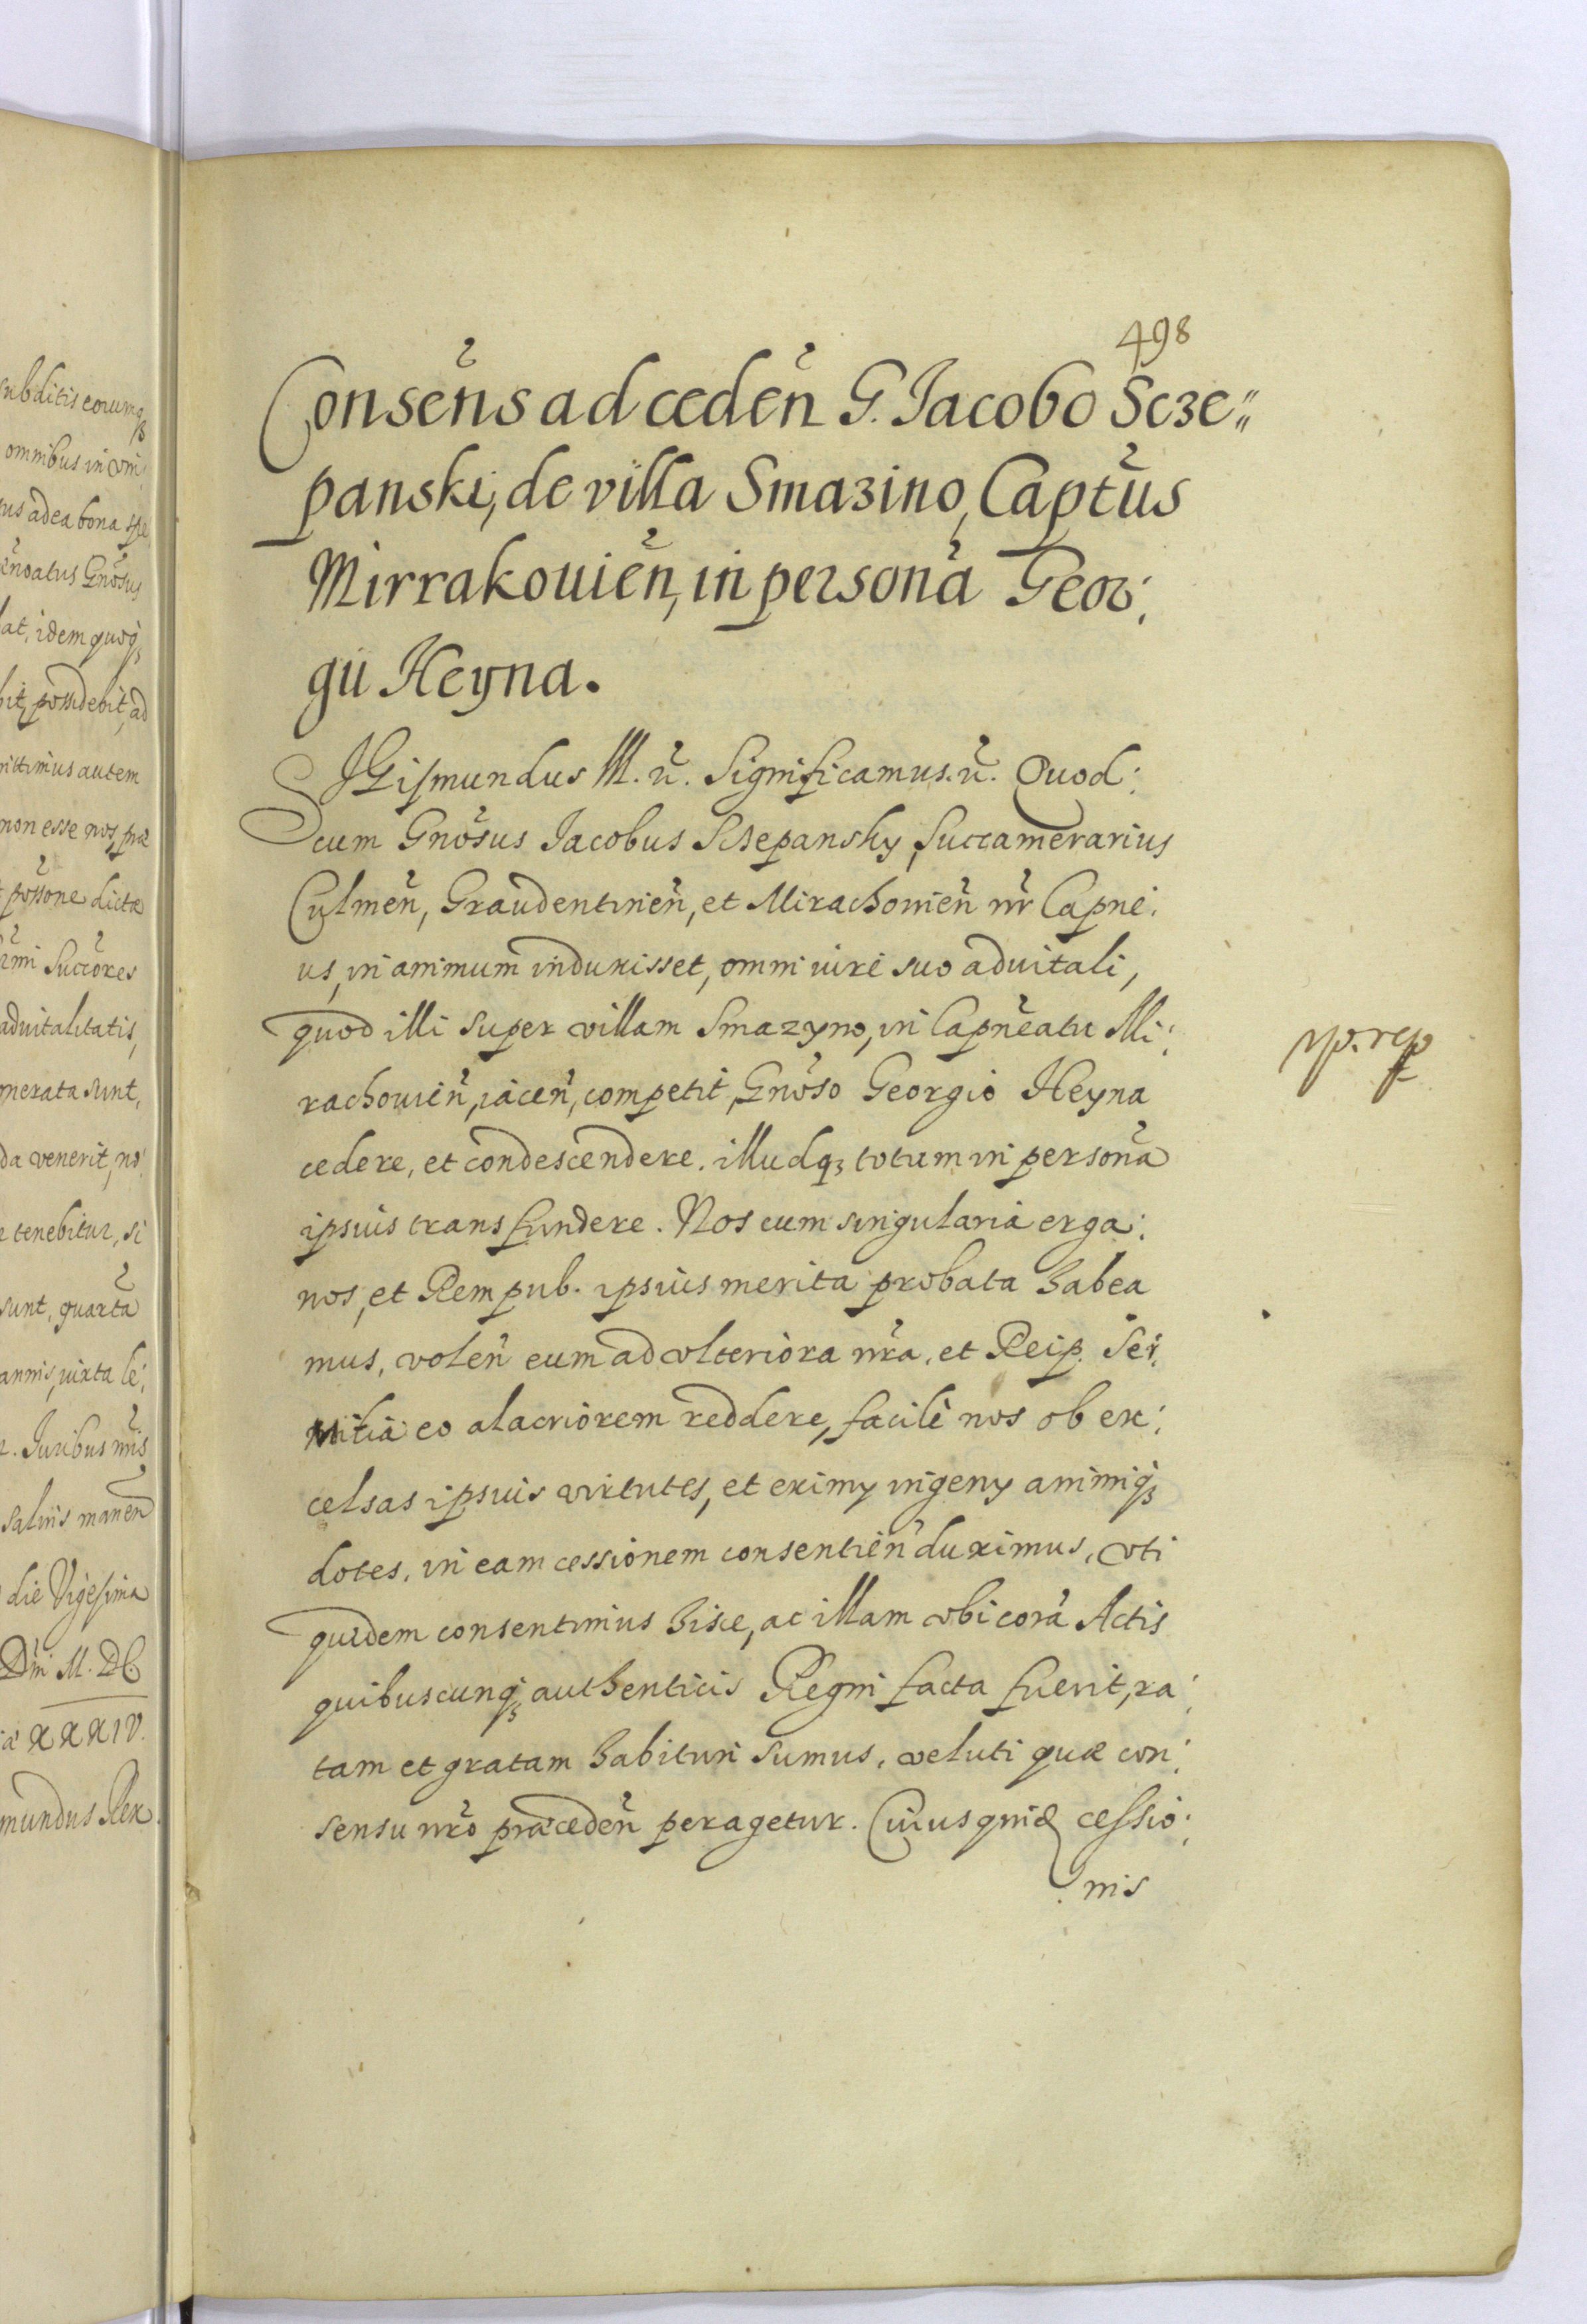 subditis eorumq̃
omnibus in
adea bona
Gnosus
at, idem quoq̃
possidebit, ad
autem
non esse nos, præ
possone dictæ
Succores
aduitalitatis,
merata sunt,
da venerit, nõ
tenebitur, si
sunt, quarta
annis, iuxta le:
Iuribus nr̃is
saluis manen̄
die Vigesima
Dñi M. DC
XXXIV.
mundus Rex
498
Consens̄ ad ceden̄ G. Jacobo Scze„
panski, de villa Smazino, Captus̄
Mirrakouien̄, in persona͂ Geor:
gii Heyna.
SIGismundus III. ñ. Significamus. ñ. Quod:
cum Gnosus͂ Jacobus Sczepansky, Succamerarius
Culmen̄, Graudentinen̄, et Mirachouien̄ nr̄ Capne:
us, in animum induxisset, omni iure suo aduitali,
quod illi super villam Smazyno, in Capneatu Mi:
rachouien̄, iacen̄, competit, Gnoso͂ Georgio Heyna
cedere, et condescendere. illudq̃ totum in persona͂
ipsius transfundere. Nos cum singularia erga:
nos, et Rempub. ipsius merita probata habea
mus, volen̄ eum ad vlteriora nr̄a, et Reip. Ser:
uitia eo alacriorem reddere, facilè nos ob ex:
celsas ipsius virtutes, et eximy ingeny animiq̃
dotes, in eam cessionem consentien̄ duximus, vti
quidem consentimus hisce, ac illam vbi corã Actis
quibuscunq̃ authenticis Regni facta fuerit, ra:
tam et gratam habituri sumus, veluti quæ con:
sensu nr̄o præceden̄ peragetur. Cuiusquid cessio:
nis